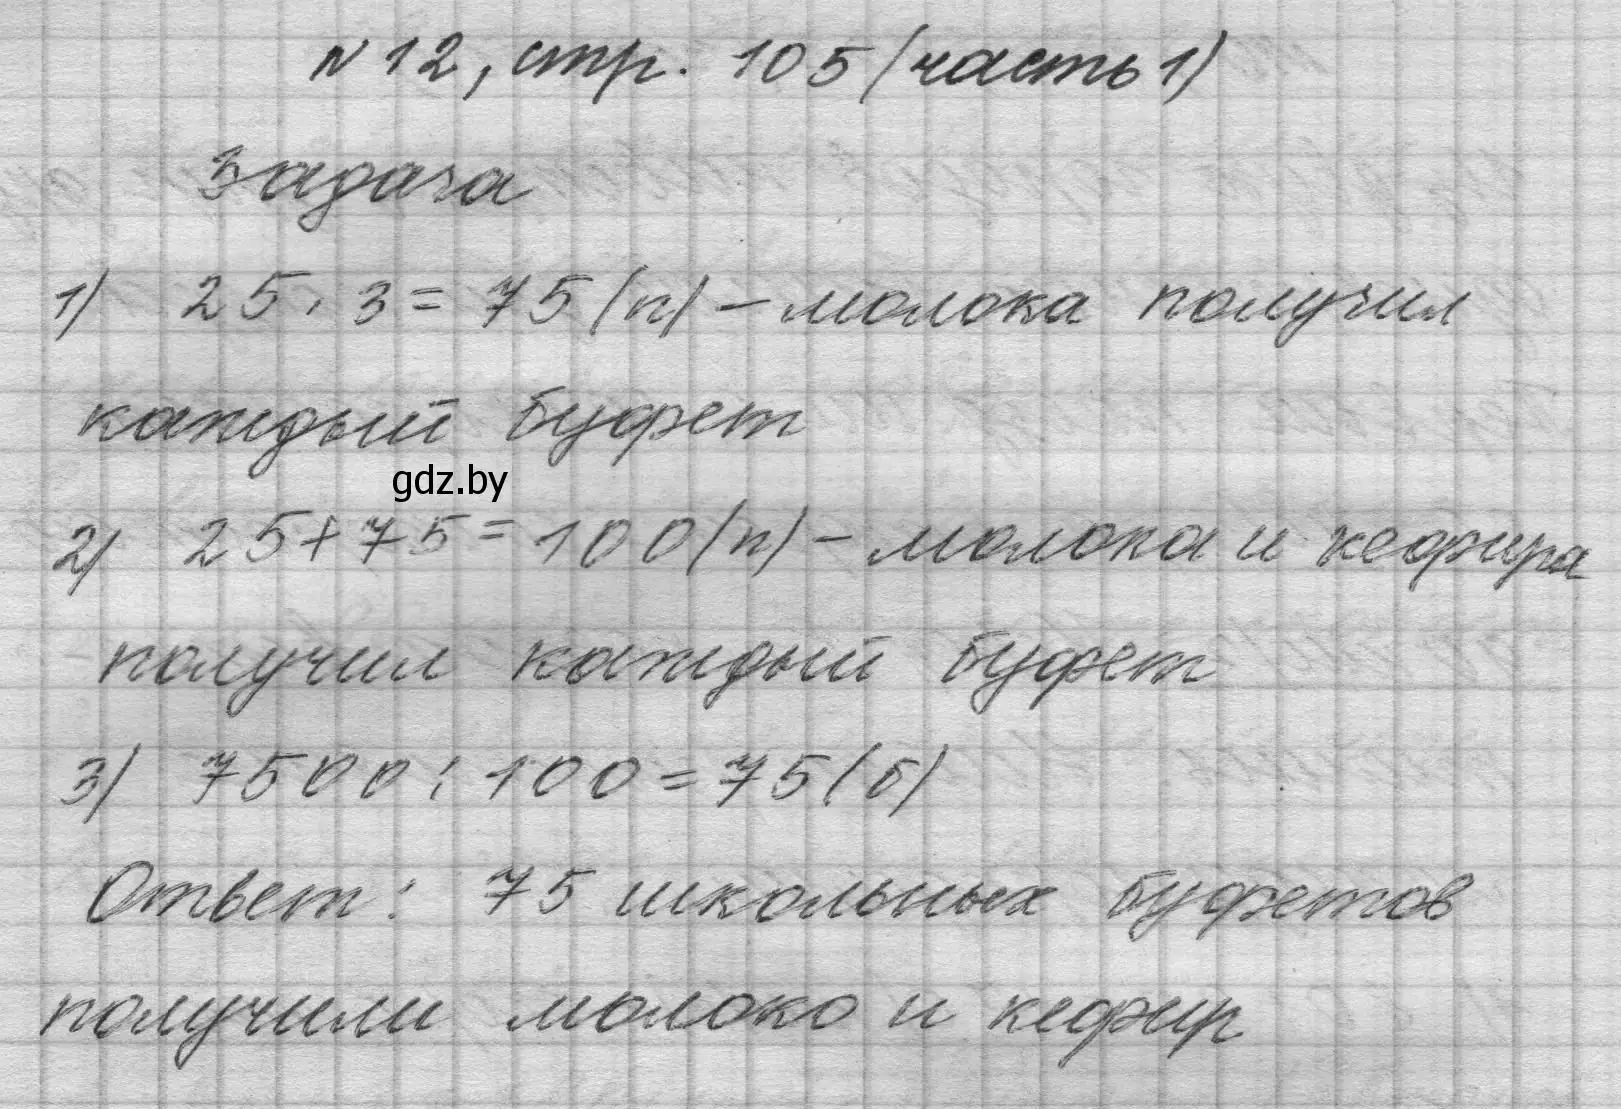 №12, стр. 105 (часть 1)
Задача
1) 25 · 3 = 75 (п) – молока получил
каждый буфет
gdz.by
2) 25 + 75 = 100 (п) – молока и кефира
получил каждый буфет
3) 7500 : 100 = 75 (б)
Ответ: 75 школьных буфетов
получили молоко и кефир